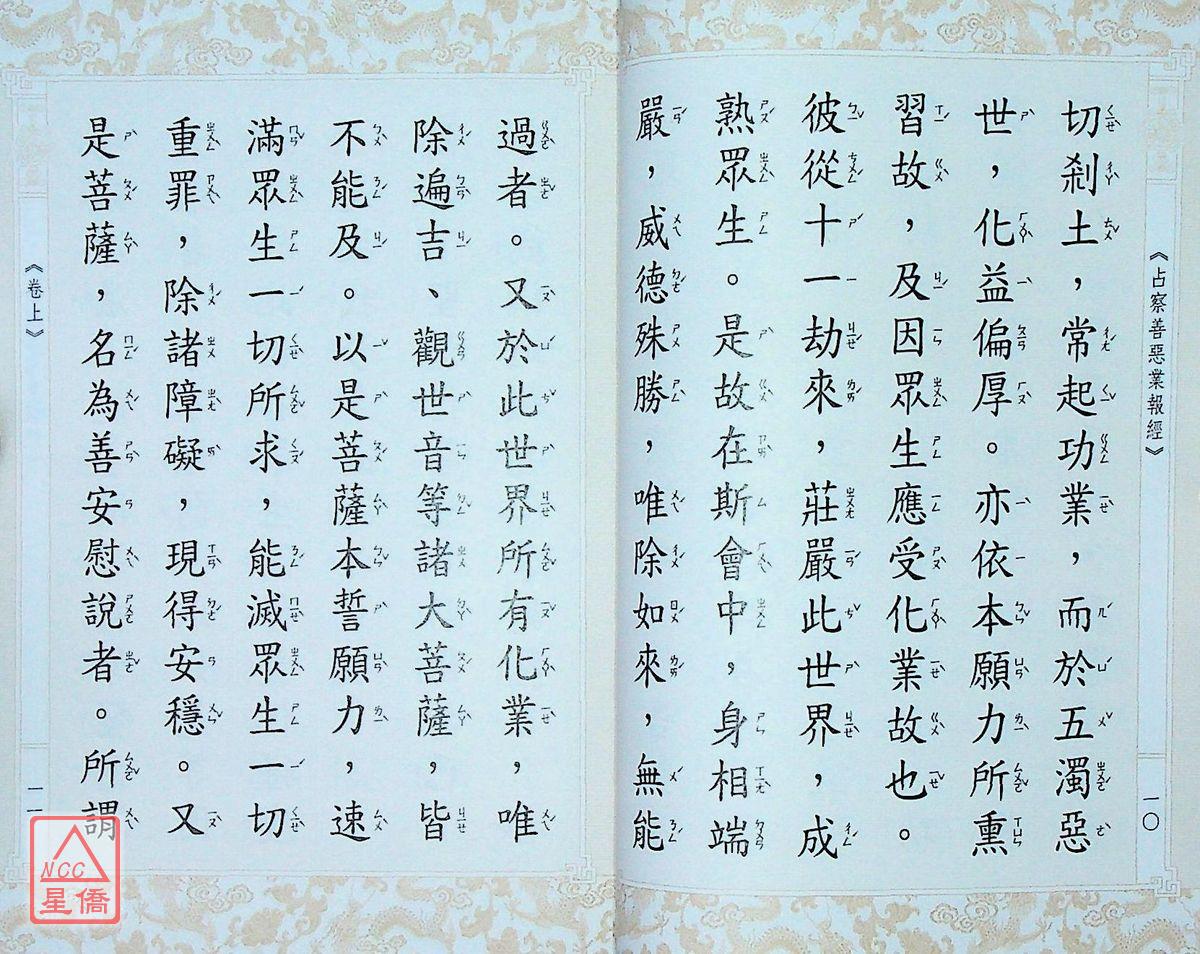 《占察善惡業報經》
一〇
切剎土，常起功業，而於五濁惡
世，化益偏厚。亦依本願力所熏
習故，及因眾生應受化業故也。
彼從十一劫來，莊嚴此世界，成
熟眾生。是故在斯會中，身相端
嚴，威德殊勝，唯除如來，無能
過者。又於此世界所有化業，唯
除遍吉、觀世音等諸大菩薩，皆
不能及。以是菩薩本誓願力，速
滿眾生一切所求，能滅眾生一切
重罪，除諸障礙，現得安穩。又
是菩薩，名為善安慰說者。所謂
《卷上》
一一
NCC
星僑